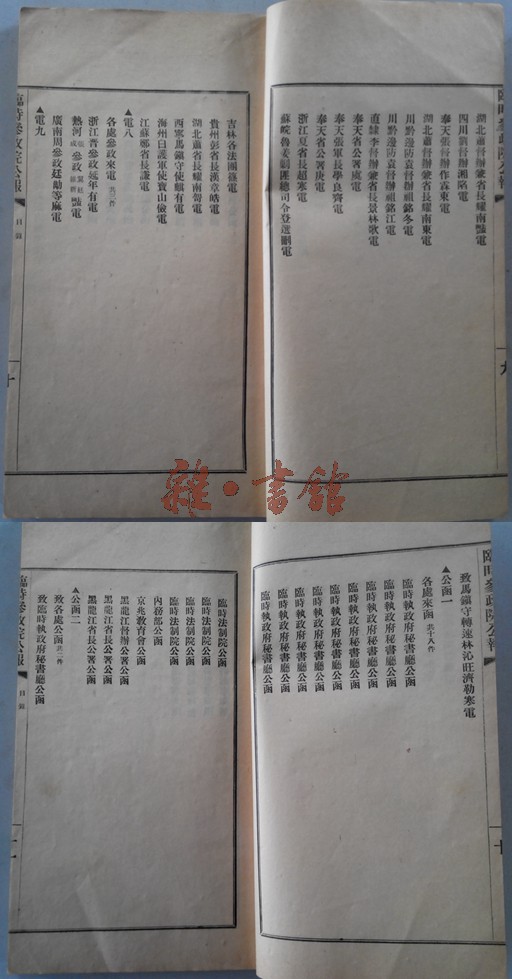 臨時參政院公報
湖北蕭督辦兼省長耀南豔電
四川劉督辦湘陷電
奉天張督辦作霖東電
湖北蕭督辦兼省長耀南東電
川黔邊防袁督辦祖銘冬電
川黔邊防袁督辦祖銘江電
直隸李督辦兼省長景林歌電
奉天省公署虞電
奉天張軍長學良齊電
奉天省公署庚電
浙江夏省長超寒電
蘇皖魯姜剿匪總司令登選電
九
吉林各法團篠電
貴州彭省長漢章皓電
湖北蕭省長耀南電
西寧馬鎮守使麒有電
海州白護軍使寶山儉電
江蘇鄭省長謙電
▲電八
各處參政來電 共三件
浙江普參政延年有電
熱河參政豔電
▲電九
廣南周參政廷勱等麻電
臨時參政院公報
目錄
十
雜·書館
臨時參政院公報
致馬鎮守轉達林沁旺濟勒寒電
▲公函一
各處來函 共十八件
臨時執政府秘書廳公函
臨時執政府秘書廳公函
臨時執政府秘書廳公函
臨時執政府秘書廳公函
臨時執政府秘書廳公函
臨時執政府秘書廳公函
臨時執政府秘書廳公函
臨時執政府秘書廳公函
臨時執政府秘書廳公函
十
臨時法制院公函
臨時法制院公函
臨時法制院公函
臨時法制院公函
內務部公函
京兆教育會公函
黑龍江督辦公署公函
黑龍江省長公署公函
黑龍江省長公署公函
▲公函二
致各處公函 共二件
致臨時執政府秘書廳公函
臨時參政院公報
目錄